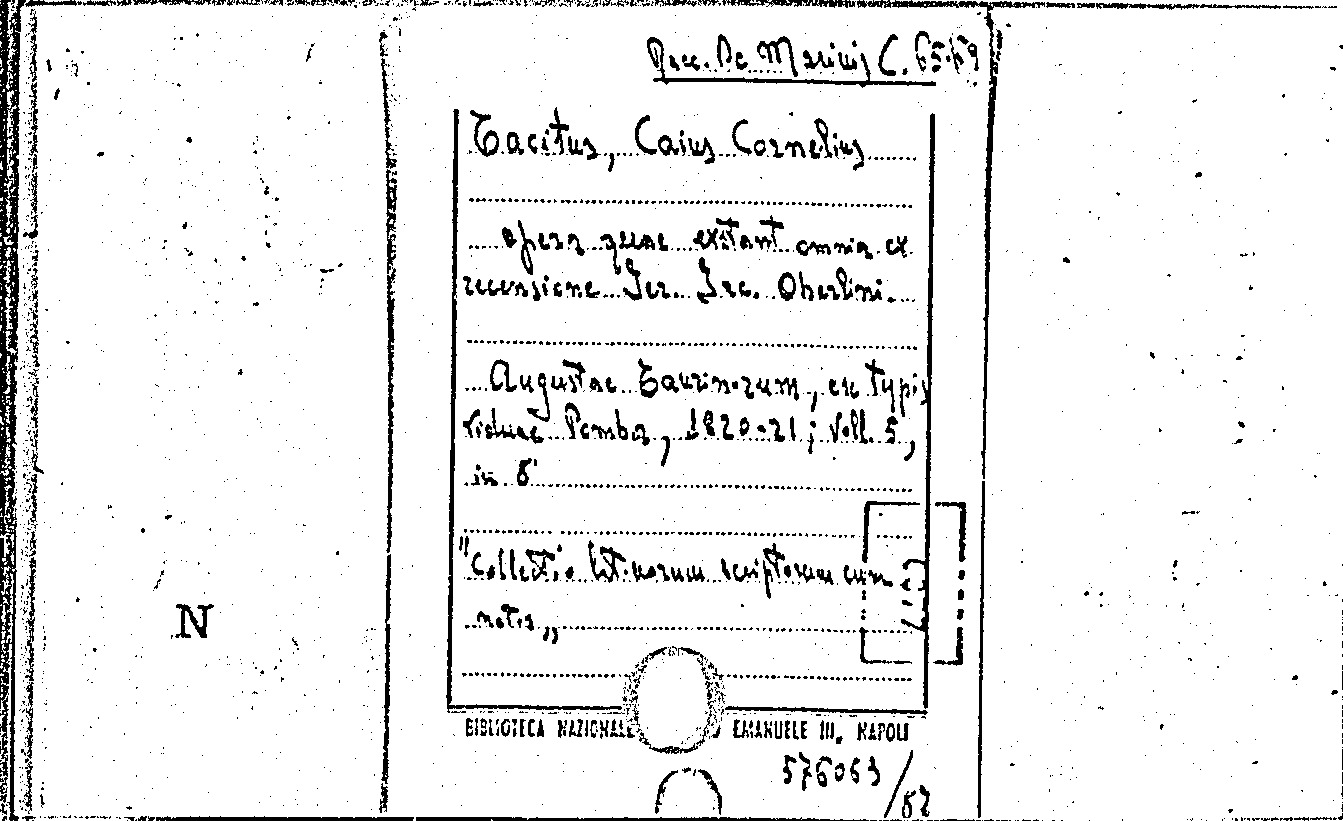 Racc. De Marinis C. 65-69
Tacitus, Caius Cornelius
opera quae extant omnia ex
recensione Ier. Iac. Oberlini.
Augustae Taurinorum, ex typis
viduae Pomba, 1820-21; voll. 5,
in 8°
"Collectio latinorum scriptorum cum
notis„
N
BIBLIOTECA NAZIONALE EMANUELE III, NAPOLI
576063/